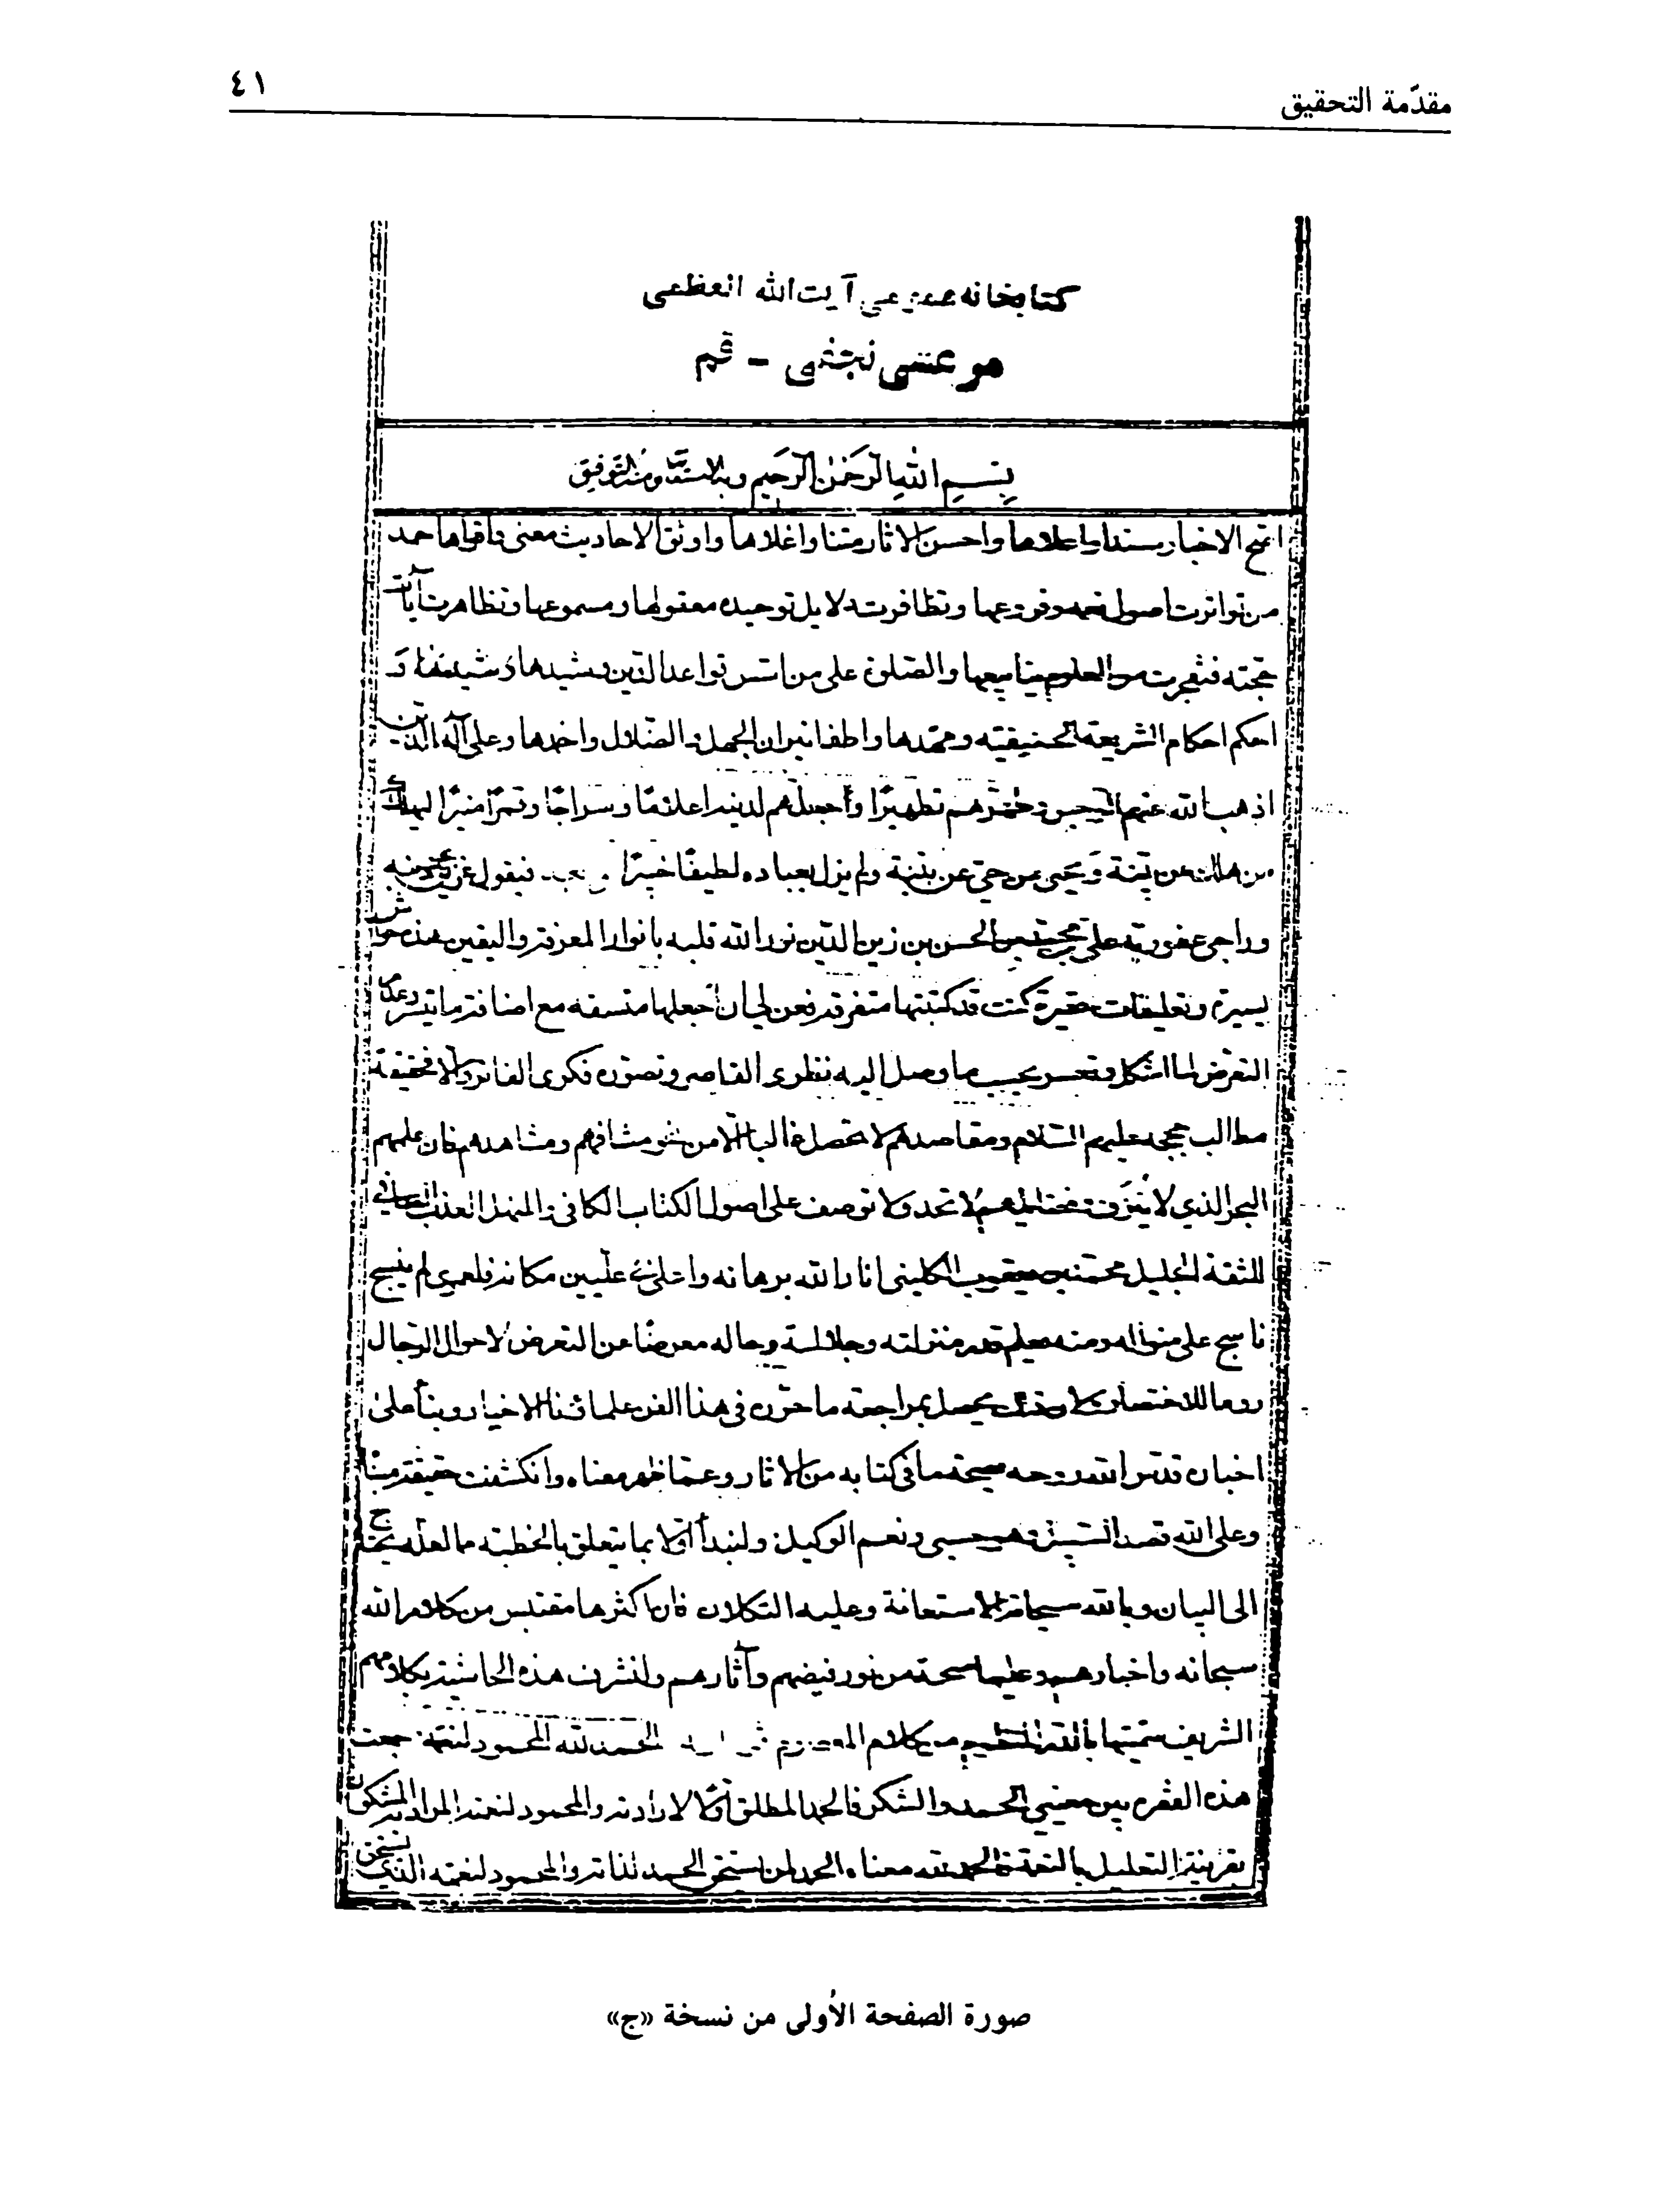 مقدّمة التحقيق
٤١
كتابخانه عمومی آیت الله العظمی
مرعشی نجفی - قم
بسم الله الرحمن الرحيم وبه الاستعانة ومنه التوفيق
الاخبار سندا واعلاها واحسن الاثار متنا واغلاها واوثق الاحاديث معنى واقواها حمد
من تواترت اصول نعمه وفروعها وتظافرت دلايل توحيده معقولها ومسموعها وتظاهرت آيات
حجته فتفجرت من العلوم ينابيعها والصلوة على من اسس قواعد الدين
احكم احكام الشريعة الحنيفيته ومهدها واطفا نيران الجهل والضلال واخمدها وعلى آله الذين
اذهب الله عنهم الرجس وطهرهم تطهيرًا وأجعلهم لدينه اعلامًا وسراجًا وقمرًا منيرًا ليهلك
من هلك عن بيّنة وَيحيى من حيّ عن بيّنة ولم يزل بعباده لطيفًا خبيرًا فيقول
وراجى عفو ربه على بن محمد بن الحسن بن زين الدين نور الله قلبه بانوار المعرفة واليقين هذه حواش
يسيرة وتعليقات حقيرة كنت قد كتبتها متفرقة فعن لي ان أجعلها متسقه مع اضافة ما تيسر
التعرض لما اشكل وتعسر بحسب ما وصل اليه نظرى القاصر وتصوره فكرى الفاتر والا فحقيقة
مطالب حججه عليهم السلام ومقاصدهم لا تحصل غالبا الا من نحو مشافهم ومشاهدهم فان علمهم
البحر الذي لا يُنزَف لا تحد ولا توصف على اصول الكتاب الكافى والمنهل العذب الصافى
للثقة الجليل محمد بن يعقوب الكلينى انار الله برهانه واعلى في عليين مكانه فلعمرى لم ينسج
ناسج على منواله ومنه يعلم قدر منزلته وجلالة وحاله معرضًا عن التعرض لاحوال الرجال
روما للاختصار ولان ذلك يحصل بمراجعة ما حرّره فى هذا الفن علمائنا الاخيار وبنأ على
اخباره قدس الله روحه بصحة ما فى كتابه من الاثار وعما ظهر معناه وانكشفت حقيقة
وعلى الله قصد السبيل وهو حسبى ونعم الوكيل ولنبدأ اوّلا بما يتعلق بالخطبة مما لعله يحتاج
الى البيان وبالله سبحانه الاستعانة وعليه التكلان فان اكثرها مقتبس من كلام الله
سبحانه واخبارهم وعليها مسحة من نور فيضهم وآثارهم ولنشرف هذه الحاشية بكلامهم
الشريف سميتها بالدر المنظوم من كلام المعصوم الحمد لله المحمود لنعمته جمعت
هذه الفقره بين معنيى الحمد والشكر فالحمد المطلق اوّلا لارادته والمحمود لنعمته المراد به الشكر
بقرينة التعليل بالنعمة فالحمد لله معناه الحمد لمن استحق الحمد لذاته والمحمود لنعمته الذى يستحق
صورة الصفحة الأولى من نسخة «ج»